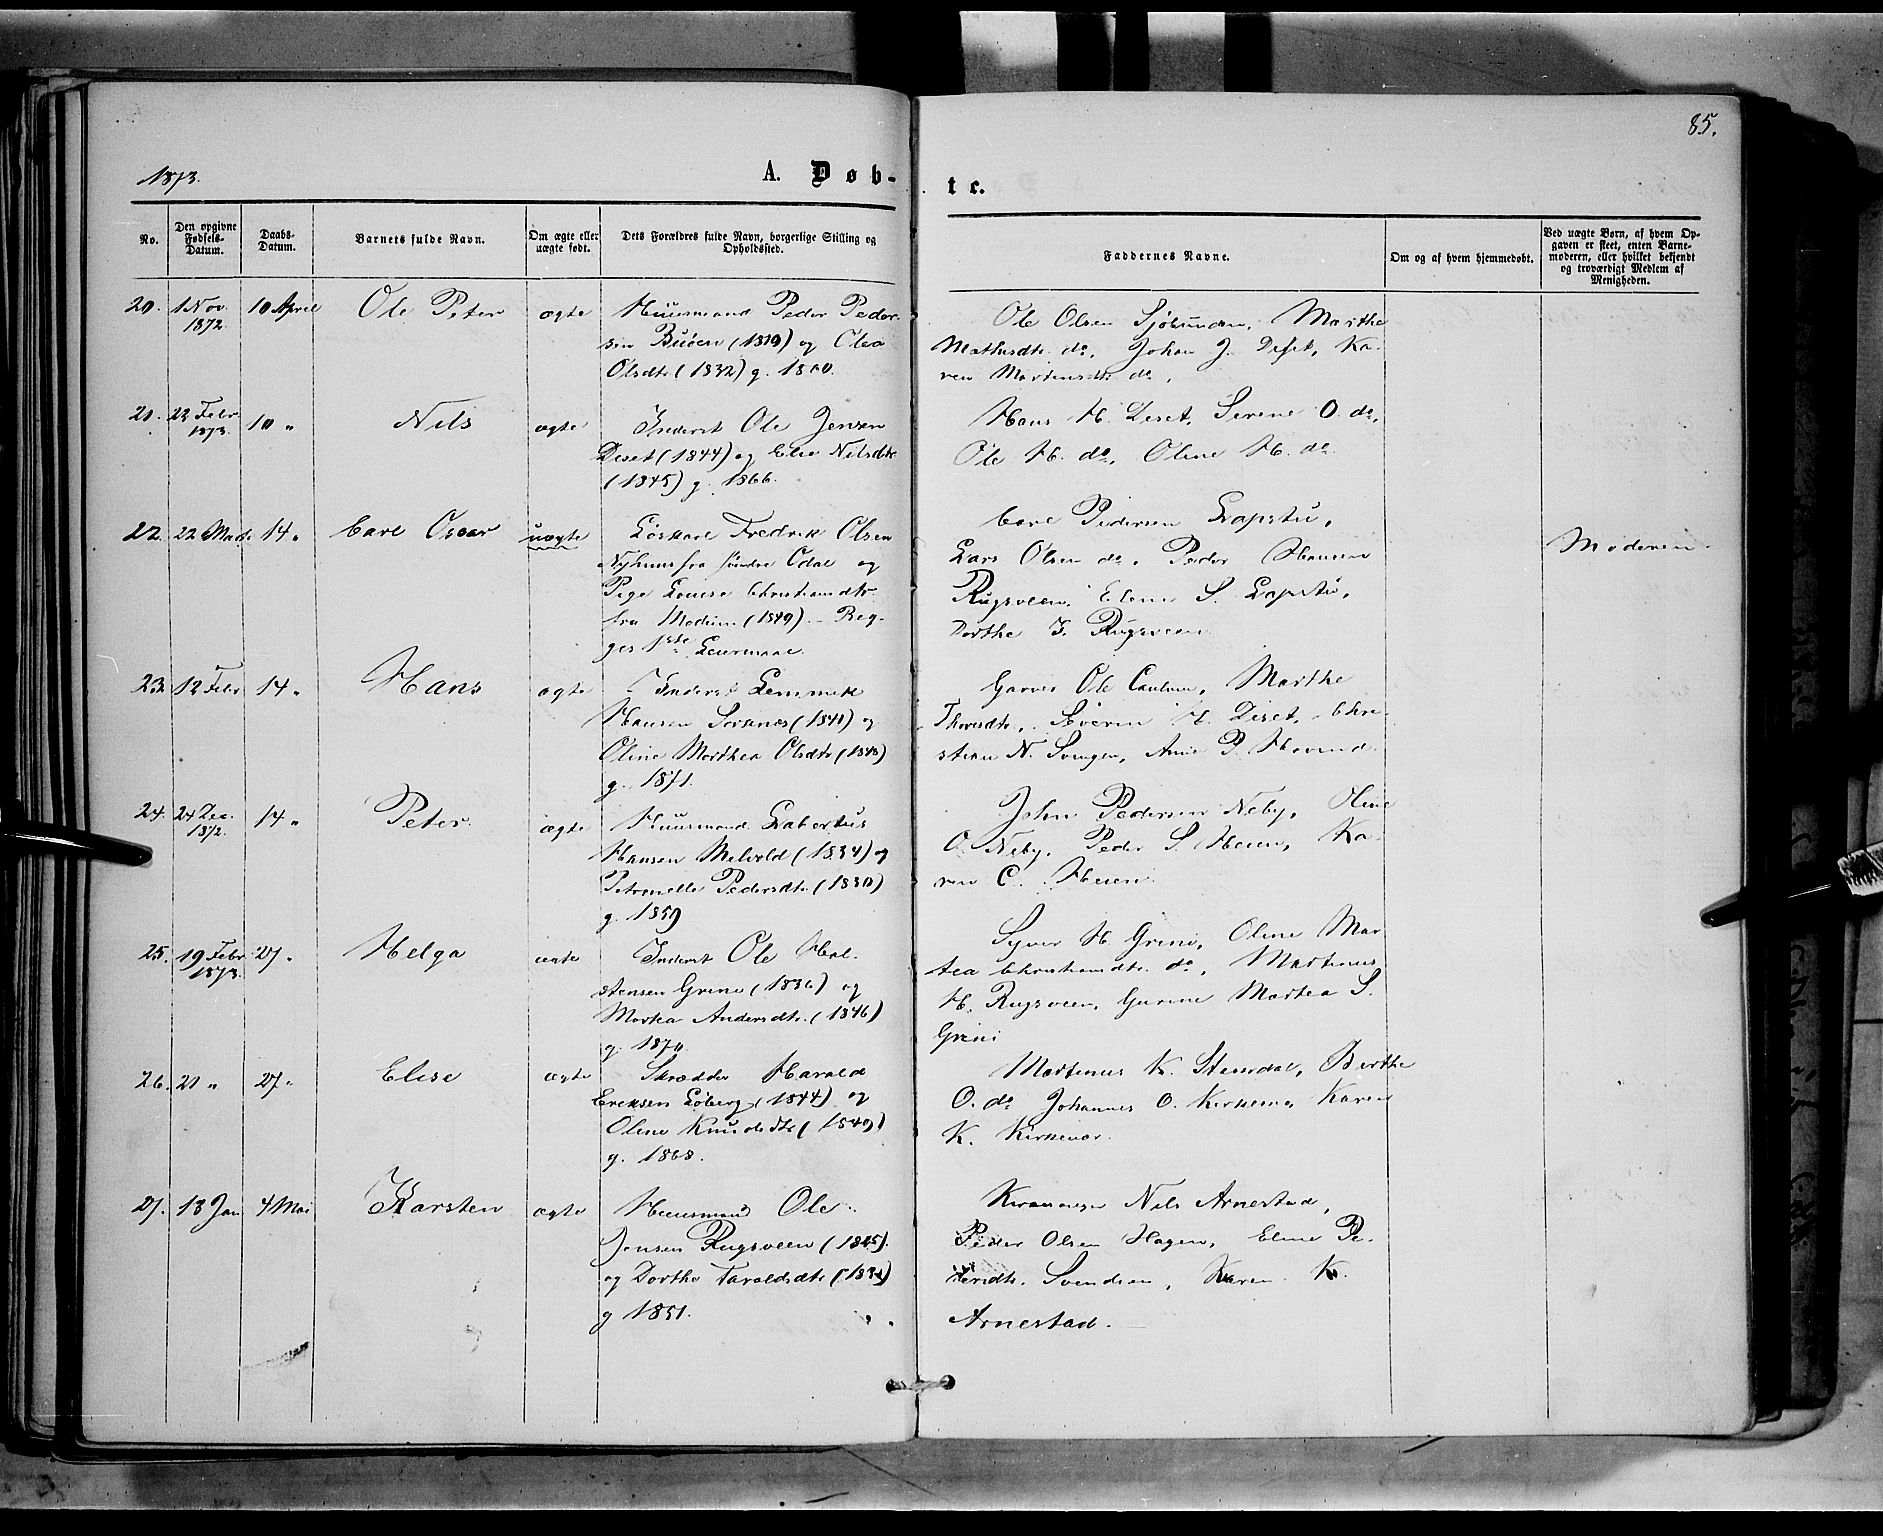 85.
1873.
A. Døb-
te.
No.
Den opgivne Fødsels-Datum.
Daabs-Datum.
Barnets fulde Navn.
Om ægte eller uægte født.
Dets Forældres fulde Navn, borgerlige Stilling og Opholdssted.
Faddernes Navne.
Om og af hvem hjemmedøbt.
Ved uægte Børn, af hvem Op-
gaven er skeet, enten Barne-
moderen, eller hvilket bekjendt
og troværdigt Medlem af
Menigheden.
20. 1 Nov. 1872. 10 April Ole Peter ægte
Huusmand Peder Peder-
sen (1819) og Olea
Olsdtr (1832) g. 1860.
Ole Olsen Marthe
Mathisdtr. do, Johan J. Deset, Ka-
ren Martinsdtr. do.
21. 22 Febr. 1873. 10 " Nils ægte
Inderst Ole Jensen
Deset (1844) og Elie Nilsdtr
(1845) g. 1866.
Hans H. Deset, Serene O. do,
Ole H. do, Oline H. do.
22. 22 Marts 14 " Carl Oscar uægte
Løskarl Fredrik Olsen
Nyhuus fra søndre Odal og
Pige Lovise Christiansdtr.
fra Modum (1849) - Beg-
ges 1ste Leiermaal.
Carl Pedersen Lapstu,
Lars Olsen do, Peder Hansen
Rugsveen, Elene S. Lapstu,
Dorthe J. Rugsveen.
Moderen.
23. 12 Febr 14 " Hans ægte
Inderst Lemmik
Hansen Sorknes (1841) og
Oline Marthea Olsdtr (1848)
g. 1871.
Garver Ole Marthe
Thoresdtr., Søeren H. Deset, Chri-
stian N. Svingen, Anne P. Hovind.
24. 24 Dec. 1872. 14 " Peter. ægte
Huusmand Labertus
Hansen Melvold (1834) og
Petronelle Pedersdtr. (1830)
g. 1859
John Pedersen Neby, Oline
O. Neby, Peder S. Heien, Ka-
ren C. Heien.
25. 19 Febr 1873. 27 " Helga ægte
Inderst Ole Hal-
stensen Grini (1836) og
Martea Andersdtr. (1846)
g. 1870.
Syver H. Grini, Oline Mar-
tea Christiansdtr. do, Martinus
H. Rugsveen, Gurine Martea S.
Grini
26. 21 " 27 " Elise ægte
Skrædder Harald
Ericksen Løberg (1844) og
Oline Knudsdtr (1849)
g. 1868.
Martinus K. Stemdal, Berthe
O. do Johannes O. Karen
K.
27. 13 Jan 4 Mai Karsten ægte
Huusmand Ole
Jensen Rugsveen (1825)
og Dorthe Taraldsdtr (1831)
g 1851.
Nils Arnestad,
Peder Olsen Hagen, Eline Pe-
dersdtr. Svendsen, Karen K.
Arnestad.